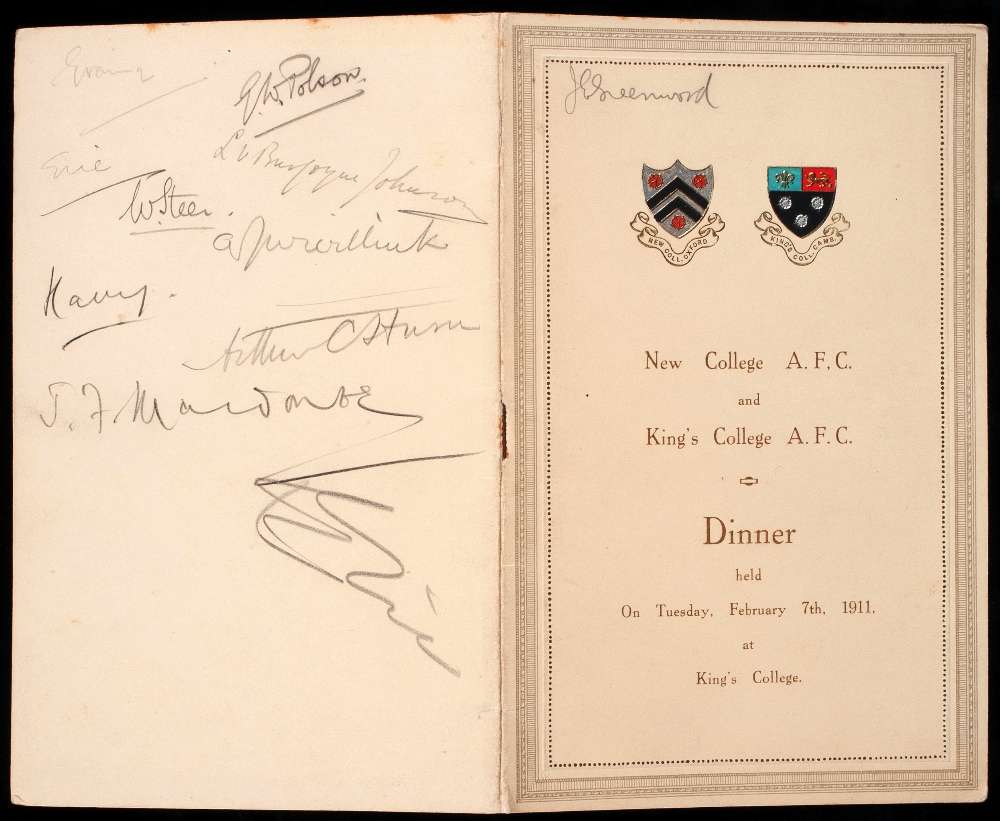 G.W. Polson.
Eric
L. v. Burgoyne Johnson
W. Steer.
Harry.
Arthur C
J. F. Macdon
Eric
J E Greenwood
NEW COLL. OXFORD
KING'S COLL. CAMB.
New College A. F. C.
and
King's College A. F. C.
Dinner
held
On Tuesday, February 7th, 1911,
at
King's College.